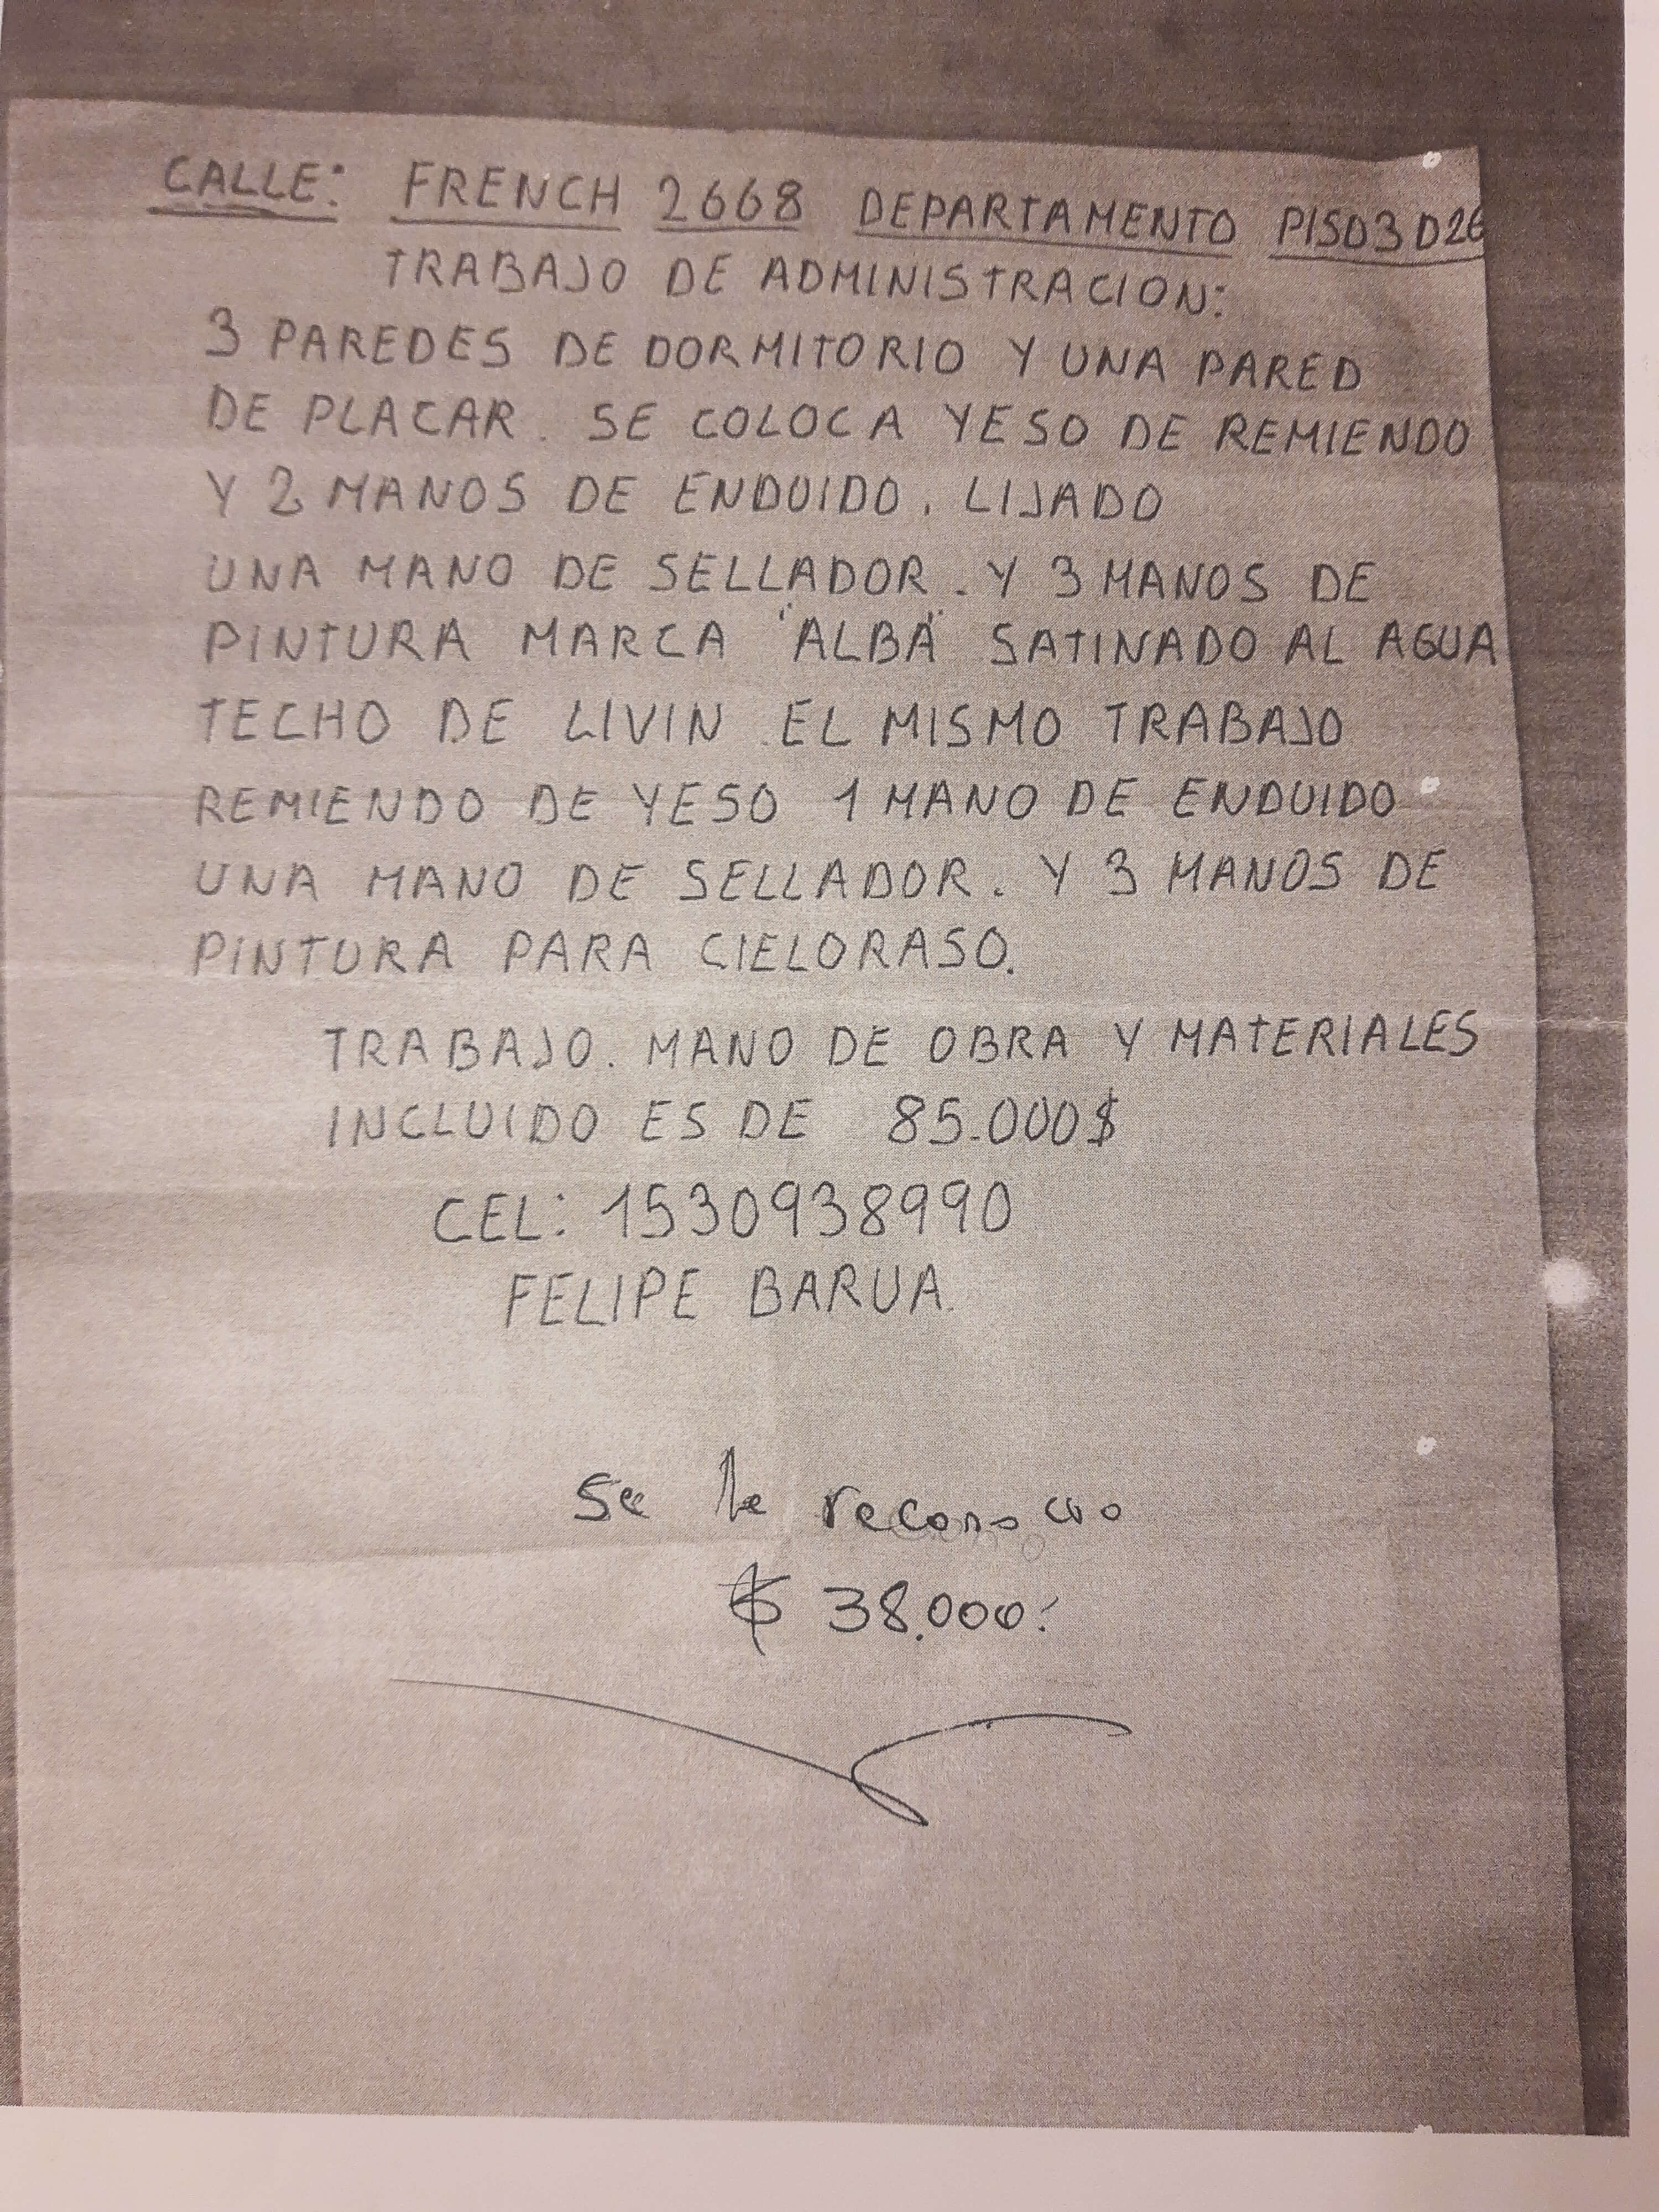 CALLE: FRENCH 2668 DEPARTAMENTO PISO3 D26
TRABAJO DE ADMINISTRACION:
3 PAREDES DE DORMITORIO Y UNA PARED
DE PLACAR. SE COLOCA YESO DE REMIENDO
Y 2 MANOS DE ENDUIDO. LIJADO
UNA MANO DE SELLADOR. Y 3 MANOS DE
PINTURA MARCA "ALBA" SATINADO AL AGUA
TECHO DE LIVIN EL MISMO TRABAJO
REMIENDO DE YESO 1 MANO DE ENDUIDO
UNA MANO DE SELLADOR. Y 3 MANOS DE
PINTURA PARA CIELORASO.
TRABAJO. MANO DE OBRA Y MATERIALES
INCLUIDO ES DE 85.000$
CEL: 1530938990
FELIPE BARUA.
Se le
$ 38.000.